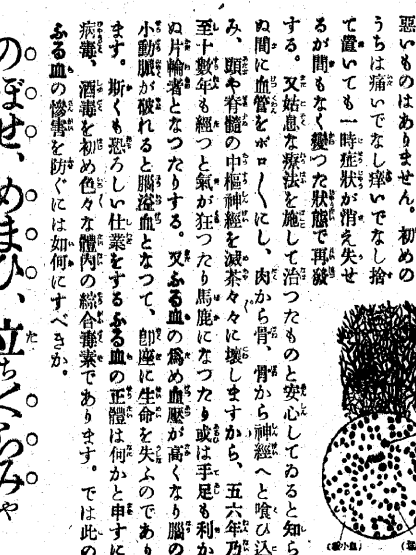 悪いものはありません。初めの
うちは痛いでなし痒いでなし捨
て置いても一時症狀が消え失せ
るが間もなく變つた狀態で再發
する。又姑息な療法を施して治つたものと安心してゐると知ら
ぬ間に血管をボロ〱にし、肉から骨、骨から神經へと喰ひ込
み、頭や脊髓の中樞神經を滅茶々々に壞しますから、五六年乃
至十數年も經つと氣が狂つたり馬鹿になつたり或は手足も利か
ぬ片輪者となつたりする。又ふる血の爲め血壓が高くなり腦の
小動脈が破れると腦溢血となつて、卽座に生命を失ふのであり
ます。斯くも恐ろしい仕業をするふる血の正體は何かと申すに
病毒、酒毒を初め色々な體內の綜合毒素であります。では此の
ふる血の慘害を防ぐには如何にすべきか。
のぼせ、めまひ、立ちくらみや